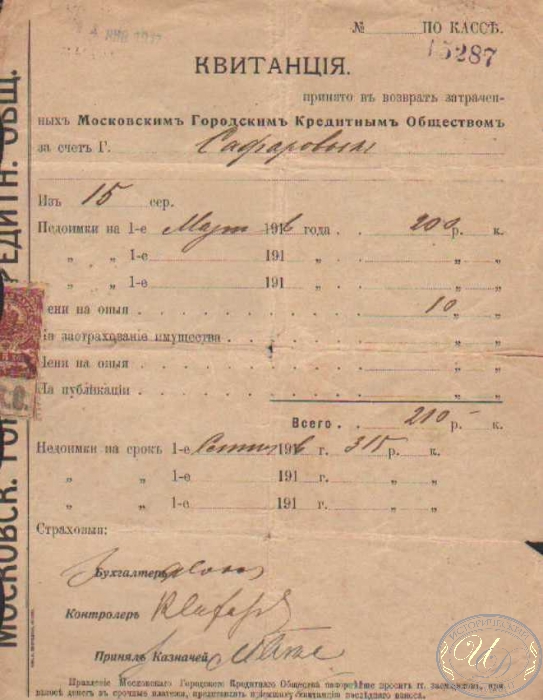 № ПО КАССѢ.
15287
КВИТАНЦІЯ.
принято въ возврать затрачен-
ныхъ Московскимъ Городскимъ Кредитнымъ Обществомъ
за счетъ Г. Сафаровымъ
Изъ 15 сер.
Недоимки на 1-е Март 1916 года . . 200 р. к.
„ „ 1-е 191 „ . . „ „
„ „ 1-е 191 „ . . „ „
Пени на оныя . . . 10 „ „
За застрахованіе имущества . . . „ „
Пени на оныя . . . „ „
На публикаціи . . . „ „
Всего . . 210 р. - к.
Недоимки на срокъ 1-е 1916 г. 315 р. к.
„ „ 1-е 191 г. „ „
„ „ 1-е 191 г. „ „
Страховыя:
Бухгалтеръ
Контролеръ
Принялъ Казначей
Правленіе Московскаго Городского Кредитнаго Общества покорнѣйше просить гг. заемщиковъ, при
взносѣ денегъ въ срочные платежи, представлять прежнюю квитанцію послѣдняго взноса.
МОСКОВСК. ГОР. КРЕДИТН. ОБЩ.
ИСТОРИЧЕСКИЙ